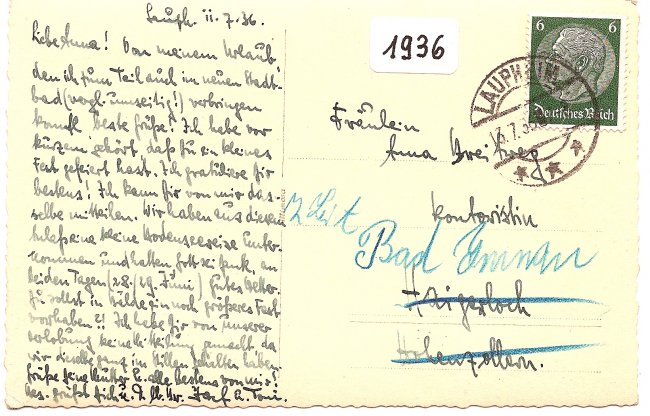 Lauph. 11.7.36.
Liebe Anna! Von meinem Urlaub,
den ich zum Teil auch im neuen Stadt-
bad (vergl. umseitig!) verbringen
konnte beste Grüße! Ich habe vor
kurzem gehört, daß du ein kleines
Fest gefeiert hast. Ich gratuliere dir
bestens! Ich kann dir von mir das-
selbe mitteilen. Wir haben aus diesem
Anlaß eine kleine Bodenseereise unter-
nommen und hatten Gott sei Dank, an
beiden Tagen (28./29. Juni) gutes Wetter.
Du sollst in Bälde ein noch größeres Fest
vorhaben?! Ich habe dir von unserer
Verlobung keine Mitteilung gemacht, da
wir dieselbe ganz im Stillen gehalten haben.
Grüße
bestens von mir!
1936
6 6
Deutsches Reich
LAUPHEIM
Fräulein
Anna
Kontoristin
z. Zeit
Bad Imnau
Haigerloch
Hohenzollern.